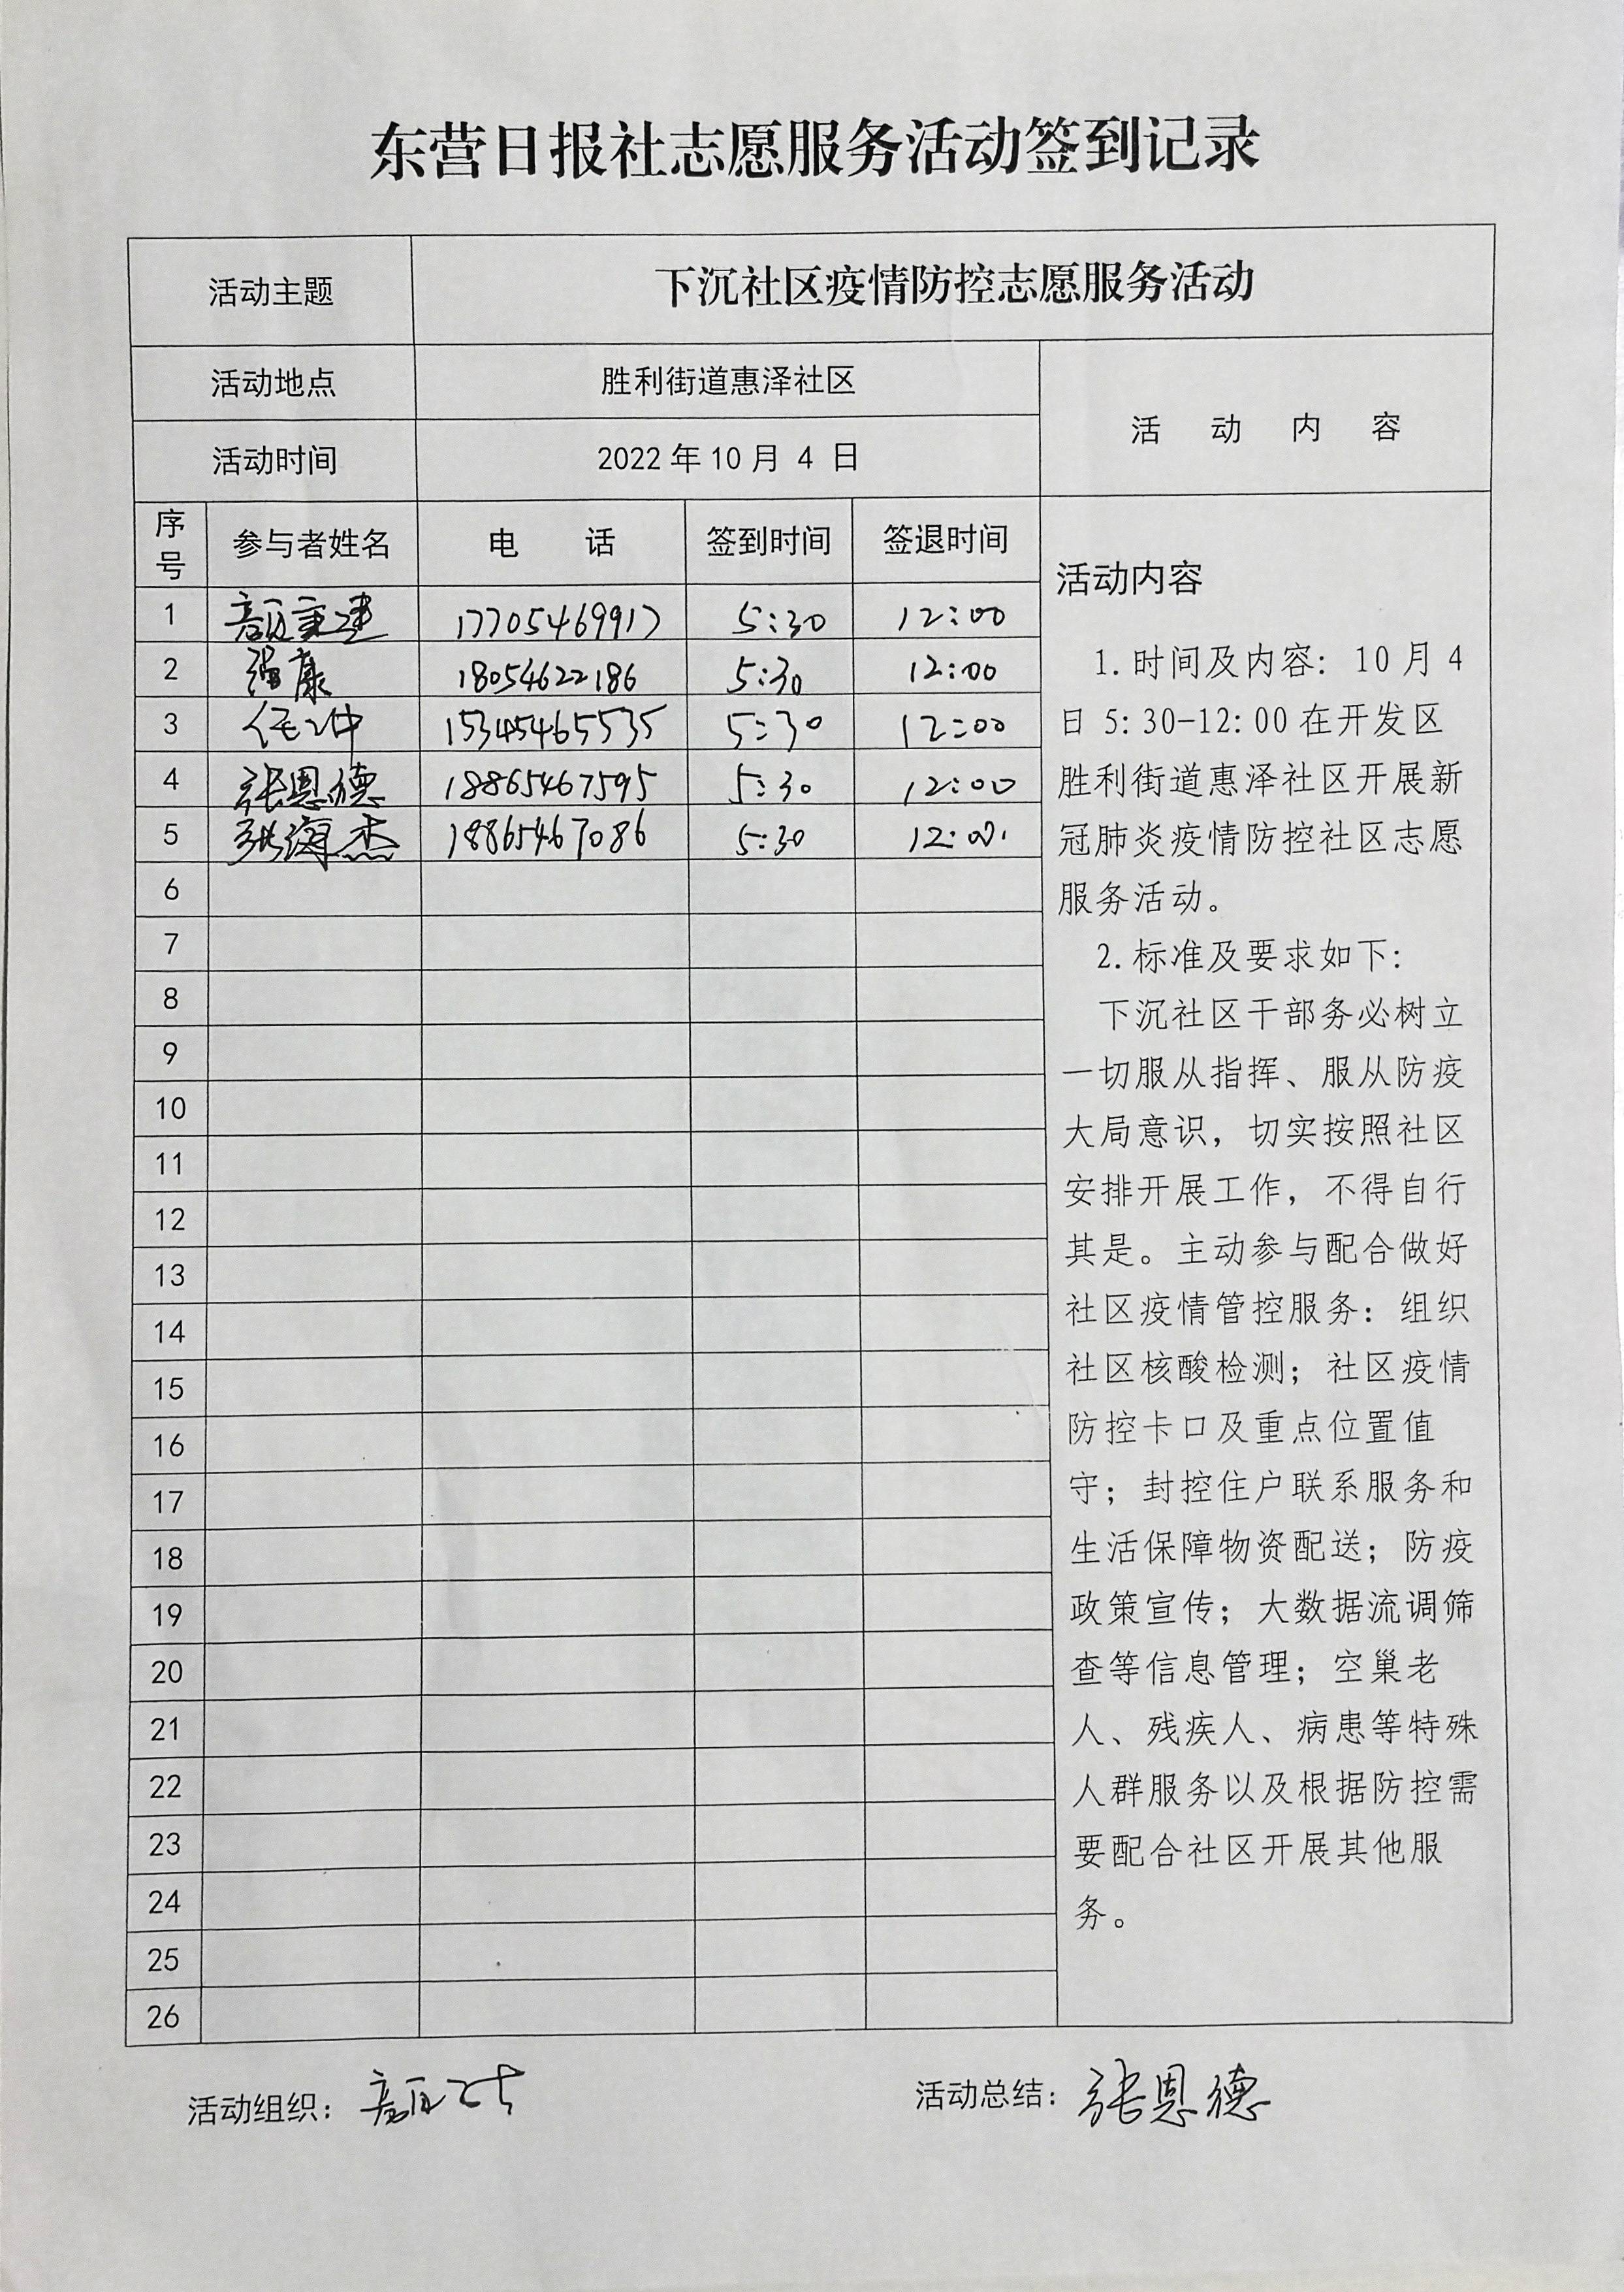 东营日报社志愿服务活动签到记录
活动主题 下沉社区疫情防控志愿服务活动
活动地点 胜利街道惠泽社区
活动时间 2022年10月 4 日
活 动 内 容
序号 参与者姓名 电 话 签到时间 签退时间
1 17705469917 5:30 12:00
2 康 18054622186 5:30 12:00
3 15345465535 5:30 12:00
4 张恩德 18865467595 5:30 12:00
5 张海杰 18865467086 5:30 12:00
6
7
8
9
10
11
12
13
14
15
16
17
18
19
20
21
22
23
24
25
26
活动内容
1.时间及内容: 10月4
日 5:30-12:00在开发区
胜利街道惠泽社区开展新
冠肺炎疫情防控社区志愿
服务活动。
2.标准及要求如下:
下沉社区干部务必树立
一切服从指挥、服从防疫
大局意识，切实按照社区
安排开展工作，不得自行
其是。主动参与配合做好
社区疫情管控服务: 组织
社区核酸检测；社区疫情
防控卡口及重点位置值
守；封控住户联系服务和
生活保障物资配送；防疫
政策宣传；大数据流调筛
查等信息管理；空巢老
人、残疾人、病患等特殊
人群服务以及根据防控需
要配合社区开展其他服
务。
活动组织: 活动总结: 张恩德